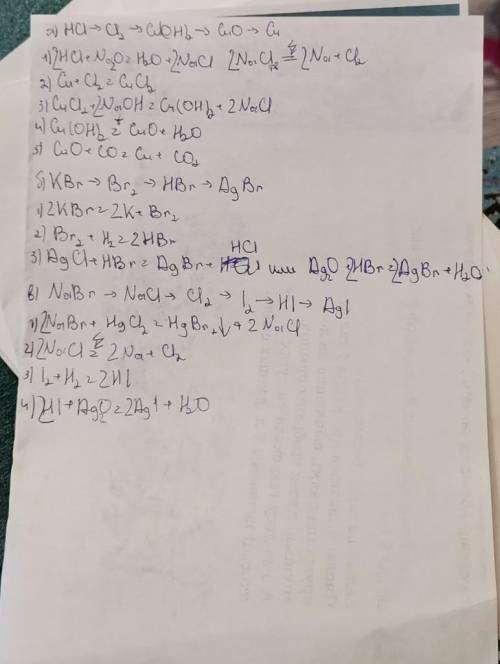 а) HCl → Cl₂ → Cu(OH)₂ → CuO → Cu
1) 2HCl + Na₂O = H₂O + 2NaCl 2NaCl = 2Na + Cl₂
2) Cu + Cl₂ = CuCl₂
3) CuCl₂ + 2NaOH = Cu(OH)₂ + 2NaCl
4) Cu(OH)₂ =ᵗ CuO + H₂O
5) CuO + CO = Cu + CO₂
б) KBr → Br₂ → HBr → AgBr
1) 2KBr = 2K + Br₂
2) Br₂ + H₂ = 2HBr
3) AgCl + HBr = AgBr + HCl или Ag₂O 2HBr = 2AgBr + H₂O
в) NaBr → NaCl → Cl₂ → I₂ → HI → AgI
1) 2NaBr + HgCl₂ = HgBr₂↓ + 2NaCl
2) 2NaCl = 2Na + Cl₂
3) I₂ + H₂ = 2HI
4) 2HI + Ag₂O = 2AgI + H₂O